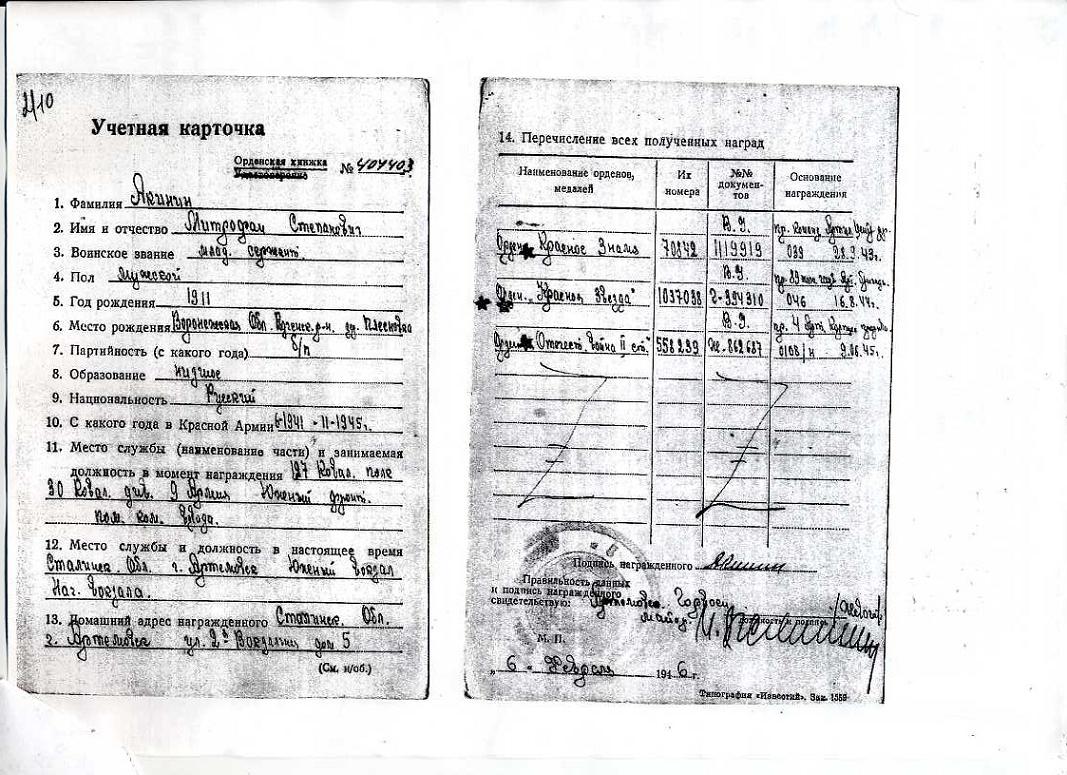 2/10
Учетная карточка
Орденская книжка
Удостоверение
№ 404403
1. Фамилия Акинин
2. Имя и отчество Митрофан Степанович
3. Воинское звание млад. сержант
4. Пол Мужской
5. Год рождения 1911
6. Место рождения Воронежская Обл.
7. Партийность (с какого года) б/п
8. Образование низшее
9. Национальность Русский
10. С какого года в Красной Армии 6-1941 - 11-1945г.
11. Место службы (наименование части) и занимаемая
должность в момент награждения 127 Кавал. полк
30 Кавал. див. 9 Армия Южный фронт.
пом. ком. взвода.
12. Место службы и должность в настоящее время
Сталинск. Обл. г. Артемовск Южный вокзал
Нач. вокзала.
13. Домашний адрес награжденного Сталинск. Обл.
г. Артемовск ул. 2я Вокзальн дом 5
(См. н/об.)
14. Перечисление всех полученных наград
Наименование орденов, медалей
Их номера
№№ документов
Основание награждения
Орден Красное Знамя 70842 В.У. 1119919 039 28.9.43г.
Орден. "Красная Звезда" 1037038 В.У. 046 16.8.44г.
Орден Отечест. Война II ст." 558239 В.У. 862687 0108/н 9.06.45г.
Подпись награжденного Акинин
Правильность данных
и подпись награжденного
свидетельствую: Артемовск. Горвоен
майор
должность и подпись
М. П.
„ 6 " Февраля 1946 г.
Типография «Известий». Зак. 1559